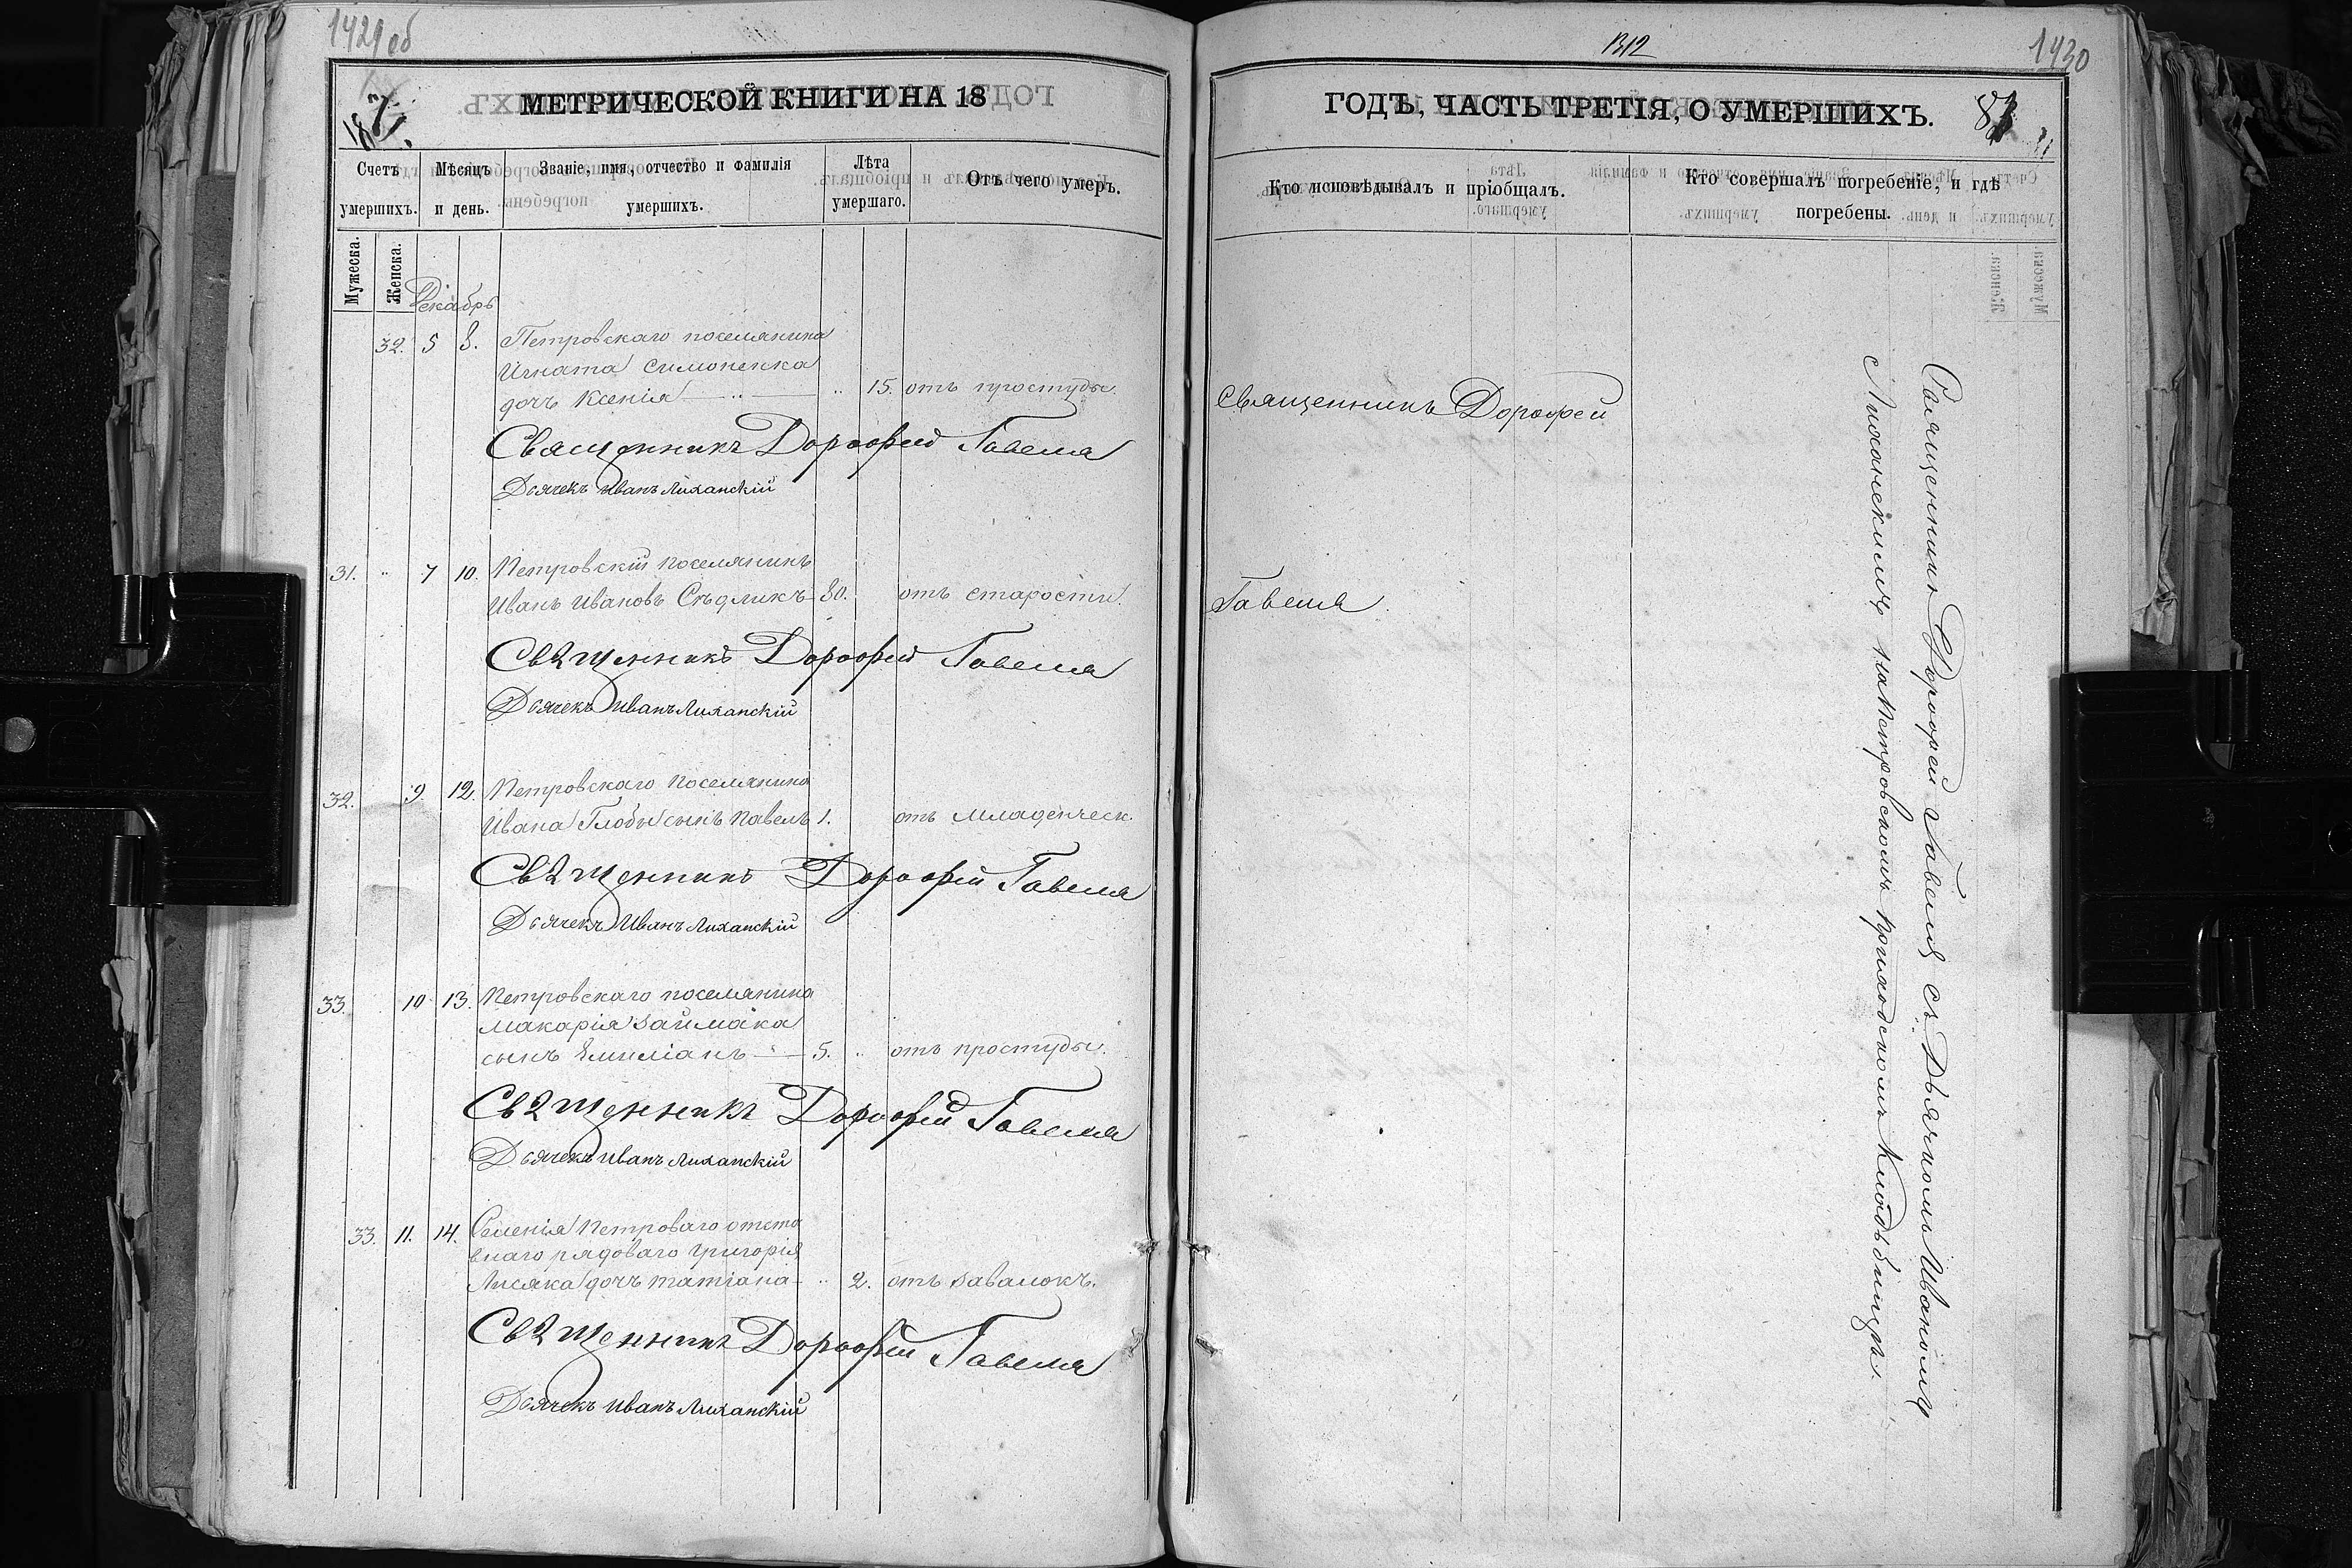 1429 об
МЕТРИЧЕСКОЙ КНИГИ НА 18
Счетъ умершихъ.
Мѣсяцъ и день.
Званіе, имя, отчество и фамилія умершихъ.
Лѣта умершаго.
Отъ чего умеръ.
Мужеска.
Женска.
Декабрь
32. 5 8. Петровскаго поселянина
Игната Симоненка
дочь Ксенія — 15. отъ простуды.
Священникъ Дорофей Гавеля
Дьячекъ Иванъ Лиханскій
31. " 7 10. Петровскій поселянинъ
Иванъ Ивановъ Сѣдликъ 80. отъ старости.
Священникъ Дорофей Гавеля
Дьячекъ Иванъ Лиханскій
32. 9. 12. Петровскаго поселянина
Ивана Глобы сынъ Павелъ 1. отъ младенческ.
Священникъ Дорофей Гавеля
Дьячекъ Иванъ Лиханскій
33. 10 13. Петровскаго поселянина
Макарія Займака
сынъ Емиліанъ — 5. " отъ простуды.
Священникъ Дорофей Гавеля
Дьячекъ Иванъ Лиханскій
33. 11. 14. Селенія Петроваго отста
внаго рядоваго Григорія
Лисяка дочь Татіана " 2. отъ завалокъ.
Священникъ Дорофей Гавеля
Дьячекъ Иванъ Лиханскій
1312
1430
ГОДЪ, ЧАСТЬ ТРЕТІЯ, О УМЕРШИХЪ.
Кто исповѣдывалъ и пріобщалъ.
Кто совершалъ погребеніе, и гдѣ
погребены.
Священникъ Дорофей
Гавеля
Священникъ Дорофей Гавеля съ Дьячкомъ Иваномъ
Лиханскимъ на Петровскомъ приходскомъ кладбищѣ.